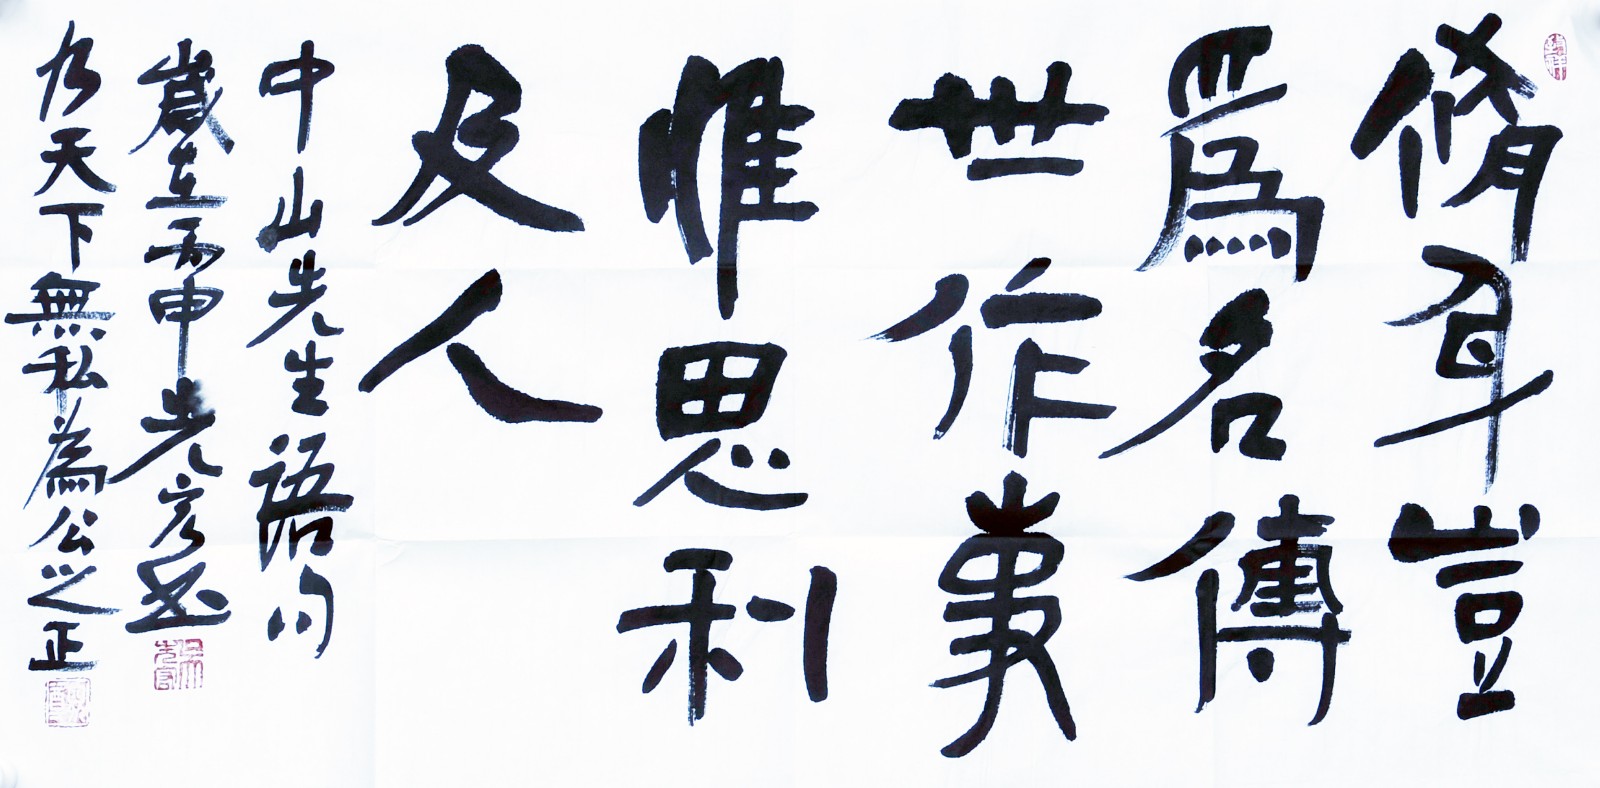 脩身豈
爲名傳
世作事
惟思利
及人
中山先生語句
歲在丙申光書
乃天下無私為公之正